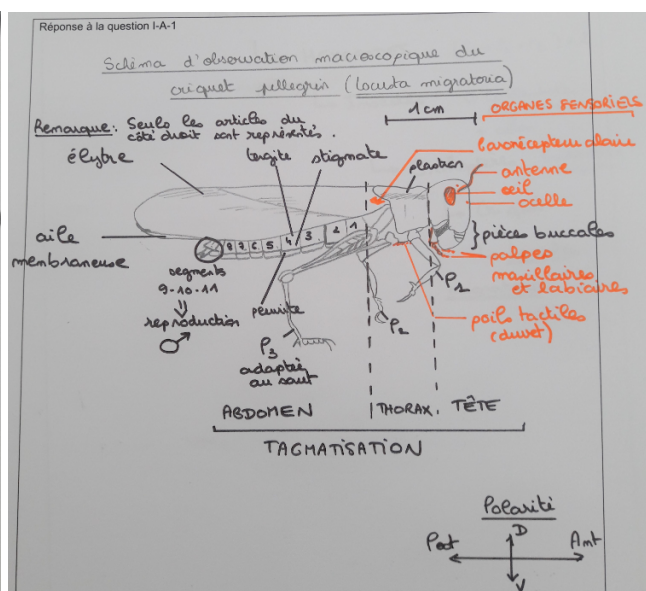 Réponse à la question I-A-1
Schéma d'observation macroscopique du
criquet pellegrin (Locusta migratoria)
1 cm
ORGANES SENSORIELS
Remarque : Seuls les articles du
côté droit sont représentés.
élytre
tergite
stigmate
barorécepteur alaire
plastron
antenne
œil
ocelle
aile
membraneuse
8 7 6 5 4 3 2 1
pièces buccales
palpes
maxillaires
et labiaires
segments
9-10-11
⇓
reproduction
♂
pleurite
P1
P2
poils tactiles
(duvet)
P3
adaptée
au saut
ABDOMEN
THORAX
TÊTE
TAGMATISATION
Polarité
D
Post
Ant
V